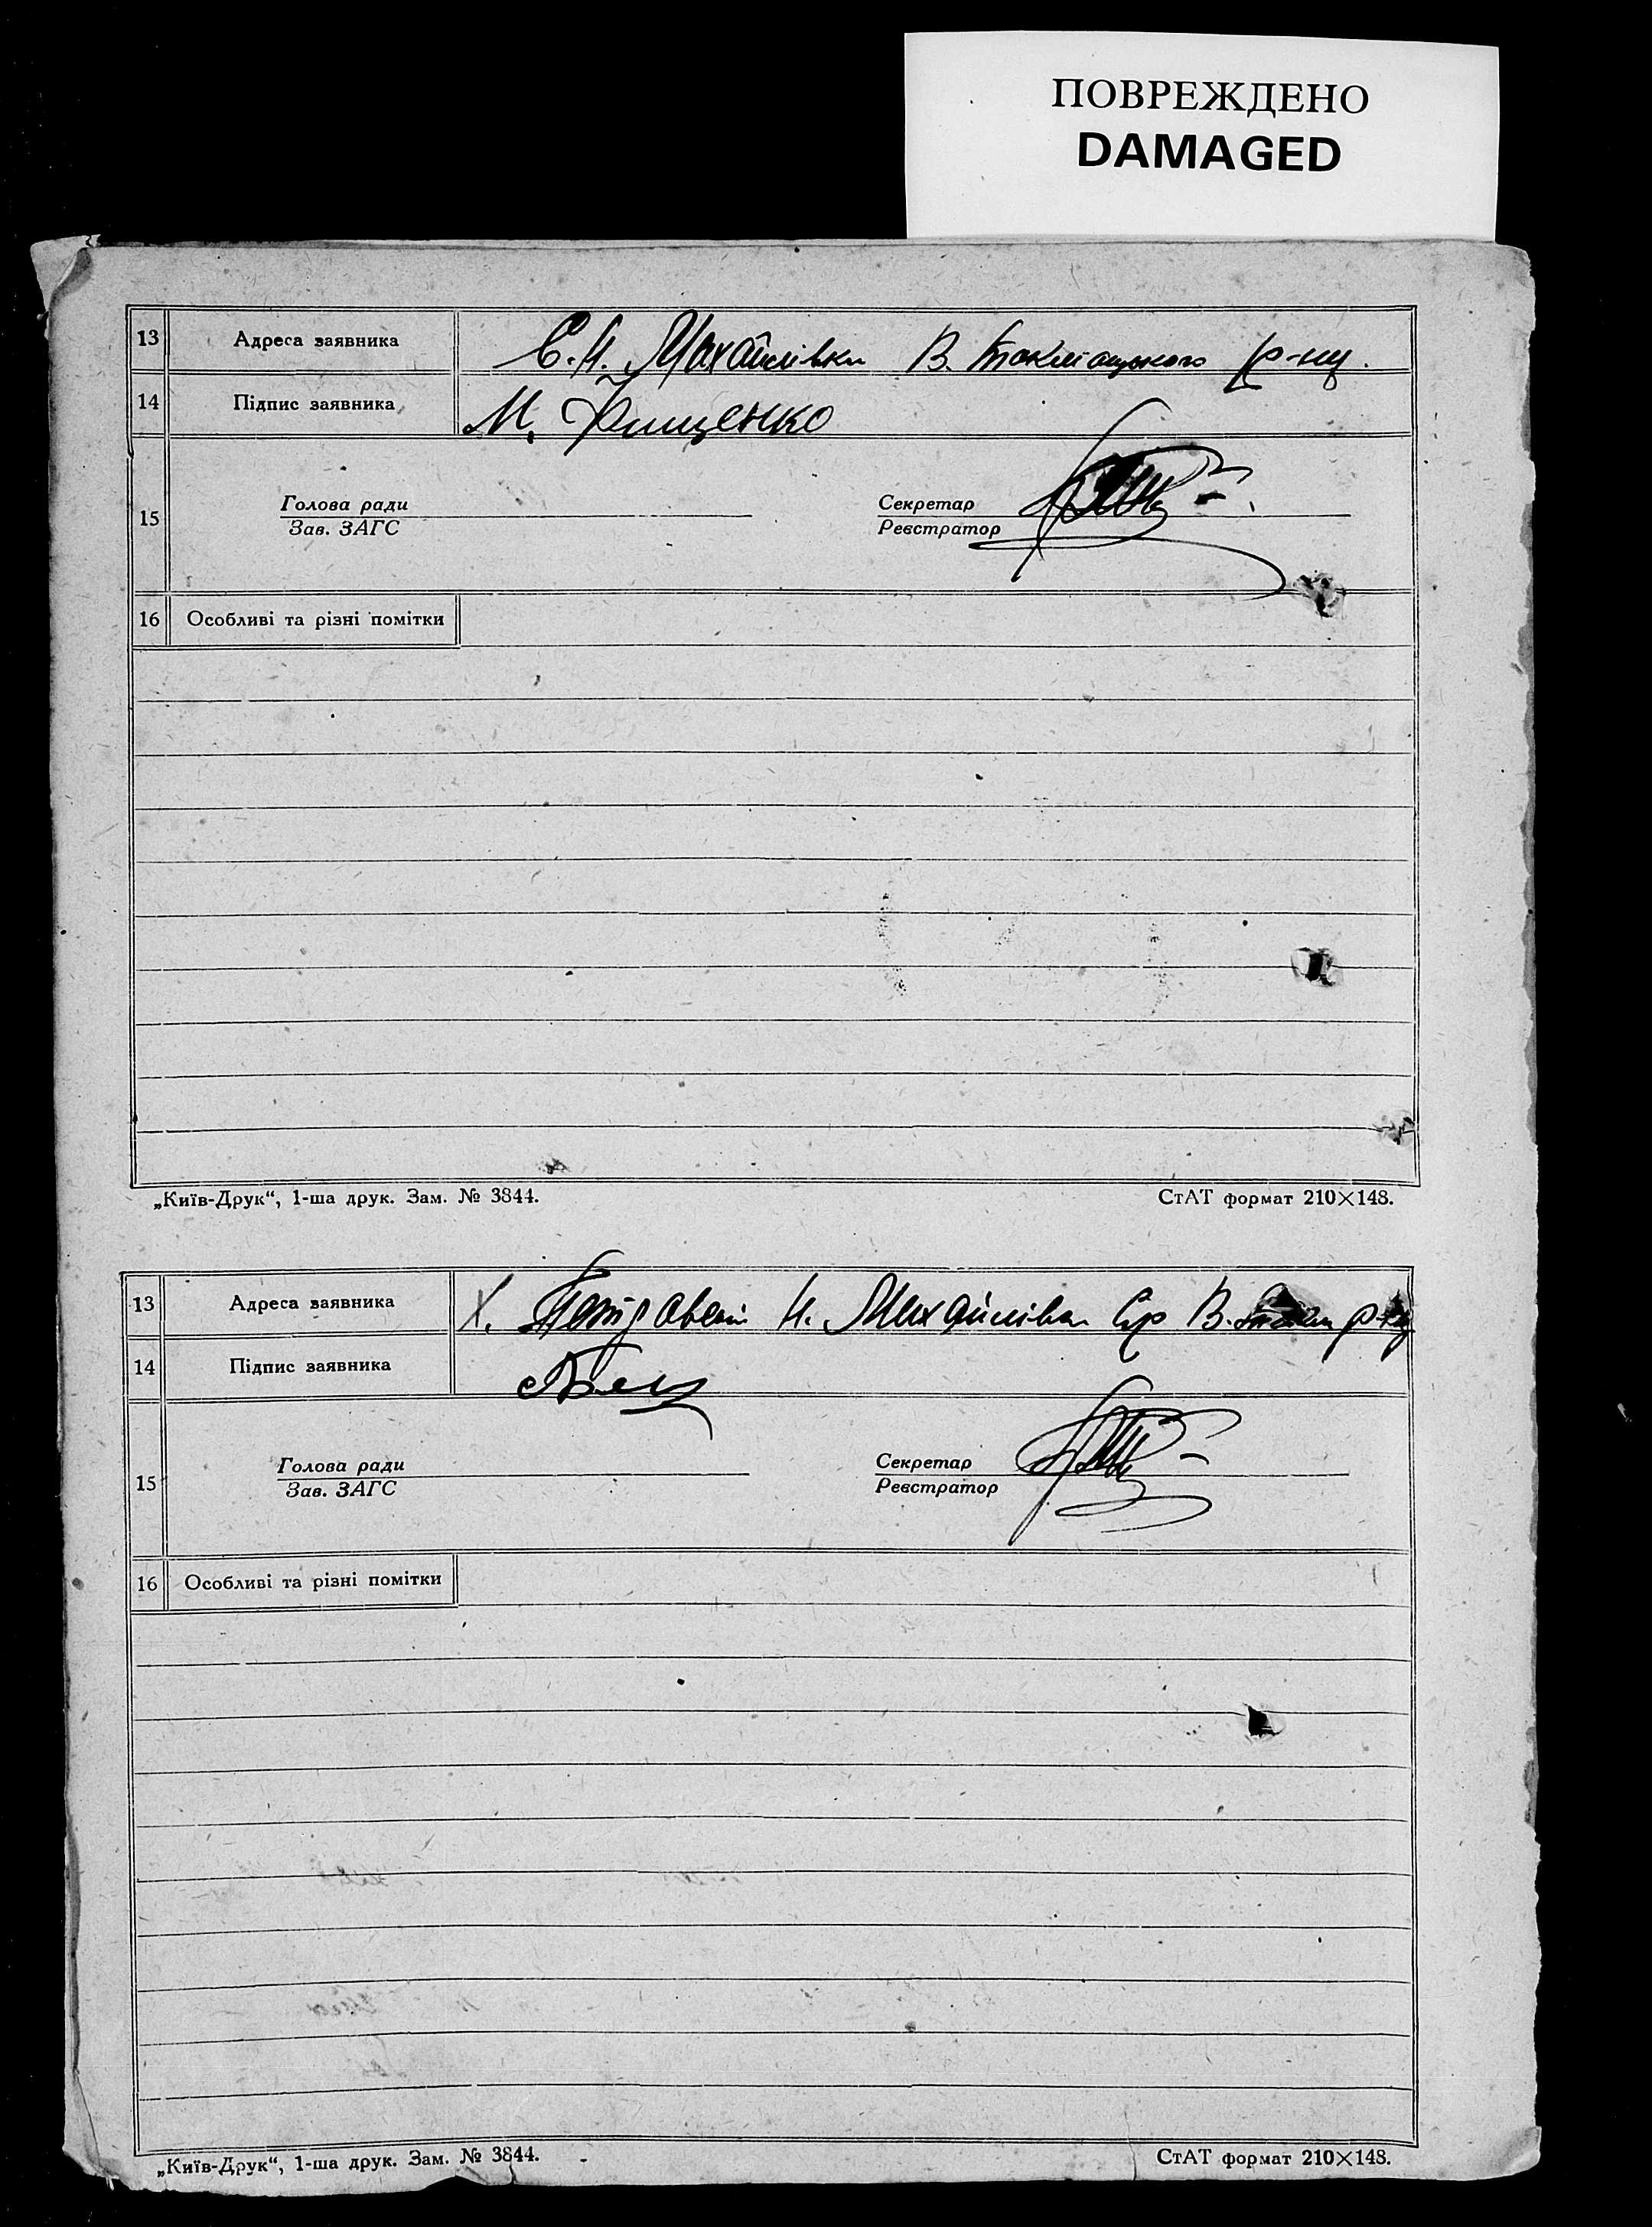 ПОВРЕЖДЕНО
DAMAGED
13 Адреса заявника С.Н. Михайлівка В. Токмацького р-ну.
14 Підпис заявника М.
15 Голова ради
Зав. ЗАГС
Секретар
Реєстратор
16 Особливі та різні помітки
„Київ-Друк“, 1-ша друк. Зам. № 3844. СтАТ формат 210×148.
13 Адреса заявника Х. Н. Михайлівка В. р-ну
14 Підпис заявника
15 Голова ради
Зав. ЗАГС
Секретар
Реєстратор
16 Особливі та різні помітки
„Київ-Друк“, 1-ша друк. Зам. № 3844. СтАТ формат 210×148.